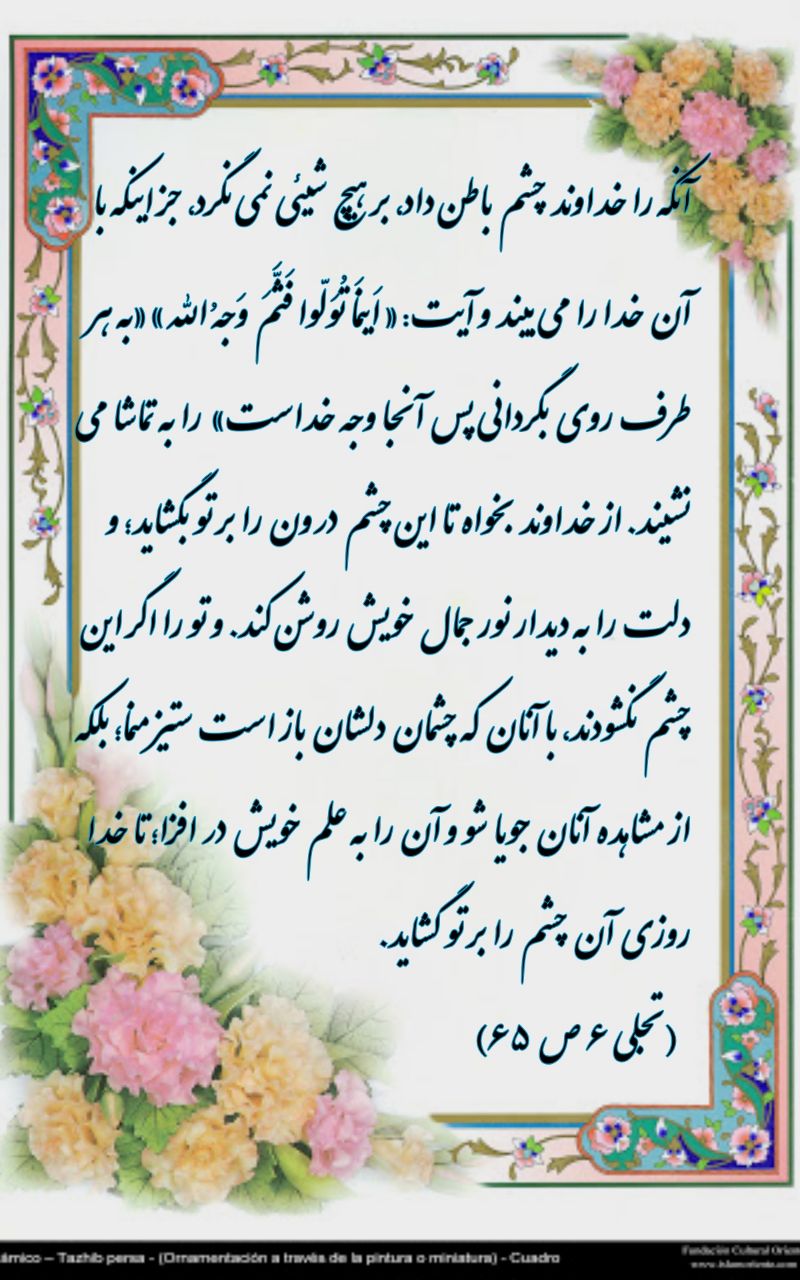 آنکه را خداوند چشم باطن داد، بر هیچ شیئی نمی نگرد، جز اینکه با
آن خدا را می بیند و آیت: «اَینَمَا تُوَلّوا فَثَمَّ وَجهُ الله» «به هر
طرف روی بگردانی پس آنجا وجه خداست» را به تماشا می
نشیند. از خداوند بخواه تا این چشم درون را بر تو بگشاید؛ و
دلت را به دیدار نور جمال خویش روشن کند. و تو را اگر این
چشم نگشودند، با آنان که چشمان دلشان باز است ستیز منما؛ بلکه
از مشاهده آنان جویا شو و آن را به علم خویش در افزا؛ تا خدا
روزی آن چشم را بر تو گشاید.
(تجلی ۶ ص ۶۵)
ámico – Tazhib persa - (Ornamentación a través de la pintura o miniatura) - Cuadro
Fundación Cultural Orient
www.islamoriente.com